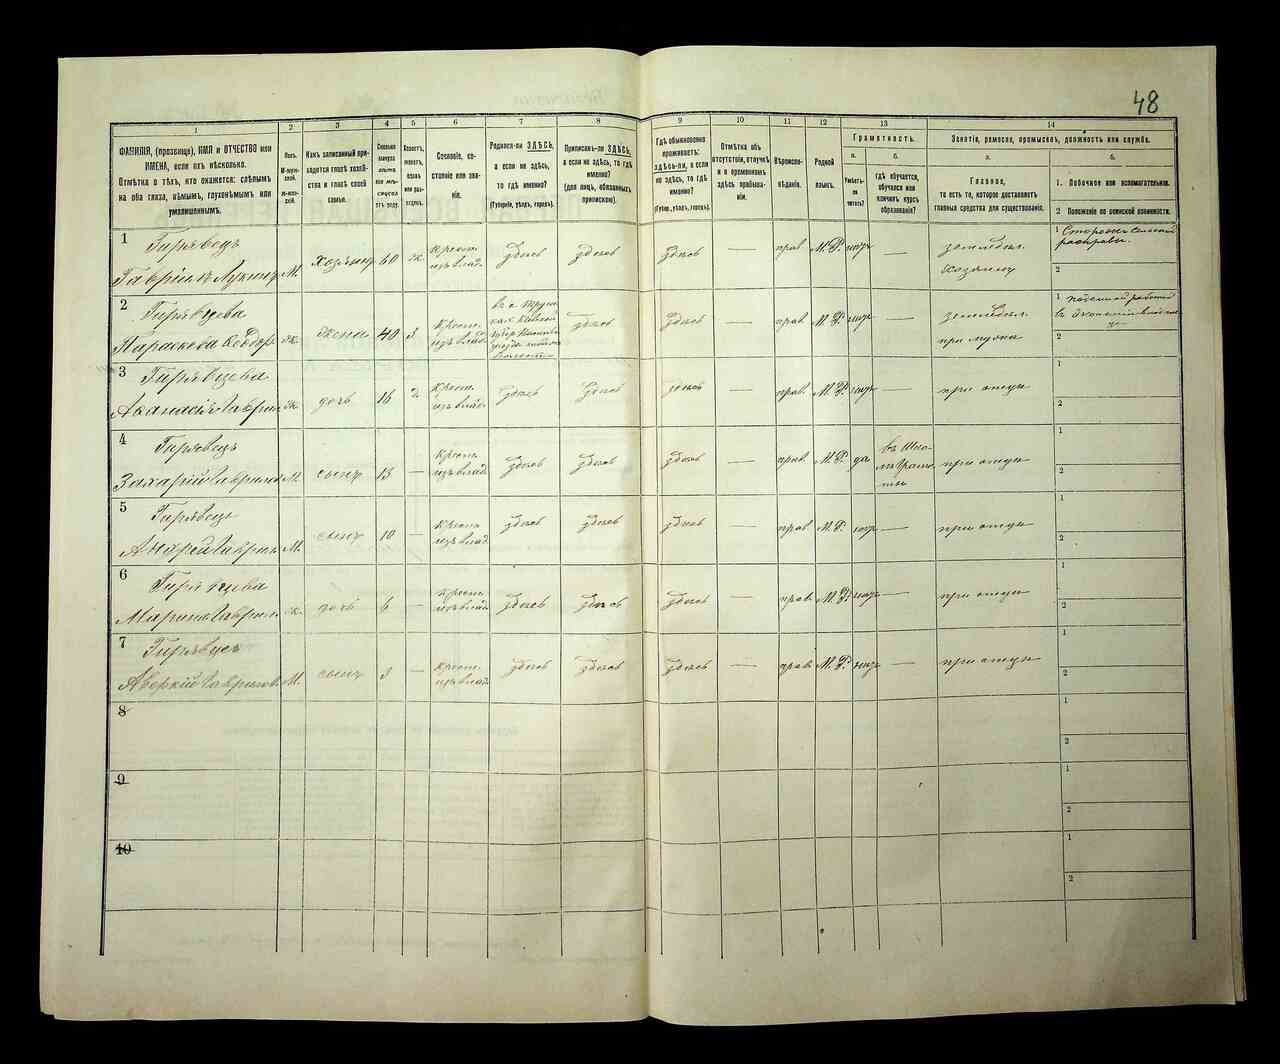 48
1 2 3 4 5 6 7 8 9 10 11 12 13 14
ФАМИЛІЯ, (прозвище), ИМЯ и ОТЧЕСТВО или
ИМЕНА, если ихъ нѣсколько.
Отмѣтка о тѣхъ, кто окажется: слѣпымъ
на оба глаза, нѣмымъ, глухонѣмымъ или
умалишеннымъ.
Полъ.
М-мужской.
Ж-женскій.
Какъ записанный приходится главѣ хозяйства и главѣ своей
семьи.
Сколько
минуло
лѣтъ
или мѣсяцевъ
отъ роду.
Холостъ,
женатъ,
вдовъ
или разведенъ.
Сословіе, состояніе или званіе.
Родился-ли ЗДѢСЬ,
а если не здѣсь,
то гдѣ именно?
(Губернія, уѣздъ, городъ).
Приписанъ-ли ЗДѢСЬ,
а если не здѣсь, то гдѣ
именно?
(для лицъ, обязанныхъ
припискою).
Гдѣ обыкновенно
проживаетъ:
здѣсь-ли, а если
не здѣсь, то гдѣ
именно?
(Губер., уѣздъ, городъ).
Отмѣтка объ
отсутствіи, отлучкѣ
и о временномъ
здѣсь пребываніи.
Вѣроисповѣданіе.
Родной
языкъ.
Грамотность.
а.
Умѣетъ-ли
читать?
б.
гдѣ обучается,
обучался или
кончилъ курсъ
образованія?
Занятіе, ремесло, промыселъ, должность или служба.
а.
Главное,
то есть то, которое доставляетъ
главныя средства для существованія.
б.
1. Побочное или вспомогательное.
2 Положеніе по воинской повинности.
1 Гирявецъ
Гаврiилъ М. хозяинъ 60 ж. крест. изъ влад. здѣсь здѣсь здѣсь — прав. М.Р. нѣтъ — земледѣл. хозяинъ
1 Сторожъ Сельской расправы.
2
2 Гирявцева
Параскева Ѳеодор. ж. жена 40 з крест. изъ влад. здѣсь здѣсь — прав. М.Р. нѣтъ — земледѣл. при мужѣ
1
2
3 Гирявцева
Аѳанасія Гаврил. ж. дочь 16 крест. изъ влад. здѣсь здѣсь здѣсь — прав. М.Р. нѣтъ — при отцѣ
1
2
4 Гирявецъ
Захарій Гаврилов. М. сынъ 13 — крест. изъ влад. здѣсь здѣсь здѣсь — прав. М.Р. да при отцѣ
1
2
5 Гирявецъ
Андрей Гаврил. М. сынъ 10 — крест. изъ влад. здѣсь здѣсь здѣсь — прав. М.Р. нѣтъ — при отцѣ
1
2
6 Гирявцева
Марина Гаврил. ж. дочь 6 — крест. изъ влад. здѣсь здѣсь здѣсь — прав. М.Р. нѣтъ — при отцѣ
1
2
7 Гирявецъ
Аверкій Гаврилов. М. сынъ 3 — крест. изъ влад. здѣсь здѣсь здѣсь — прав. М.Р. нѣтъ — при отцѣ
1
2
8
1
2
9
1
2
10
1
2